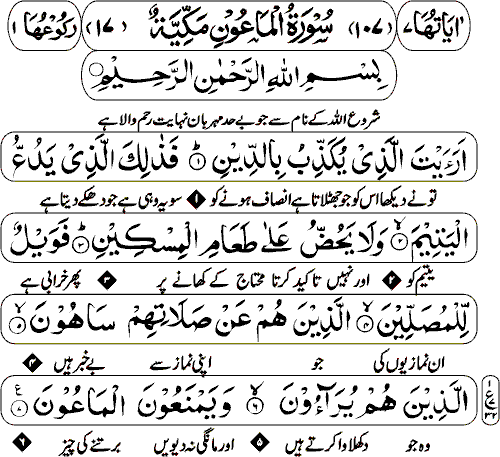 اٰيَاتُهَا ٧ (١٠٧) سُوْرَةُ الْمَاعُوْنِ مَكِّيَّةٌ (١٧) رُكُوْعُهَا ١
بِسْمِ اللهِ الرَّحْمٰنِ الرَّحِيْمِ
شروع اللہ کے نام سے جو بے حد مہربان نہایت رحم والا ہے
اَرَءَيْتَ الَّذِيْ يُكَذِّبُ بِالدِّيْنِ ۝١ فَذٰلِكَ الَّذِيْ يَدُعُّ
تو نے دیکھا اس کو جو جھٹلاتا ہے انصاف ہونے کو ۱ سو یہ وہی ہے جو دھکے دیتا ہے
الْيَتِيْمَ ۝٢ وَلَا يَحُضُّ عَلٰى طَعَامِ الْمِسْكِيْنِ ۝٣ فَوَيْلٌ
یتیم کو ۲ اور نہیں تاکید کرتا محتاج کے کھانے پر ۳ پھر خرابی ہے
لِّلْمُصَلِّيْنَ ۝٤ الَّذِيْنَ هُمْ عَنْ صَلَاتِهِمْ سَاهُوْنَ ۝٥
ان نمازیوں کی جو اپنی نماز سے بے خبر ہیں ۴
الَّذِيْنَ هُمْ يُرَآءُوْنَ ۝٦ وَيَمْنَعُوْنَ الْمَاعُوْنَ ۝٧ ع
وہ جو دکھلاوا کرتے ہیں ۵ اور مانگی نہ دیویں برتنے کی چیز ۶